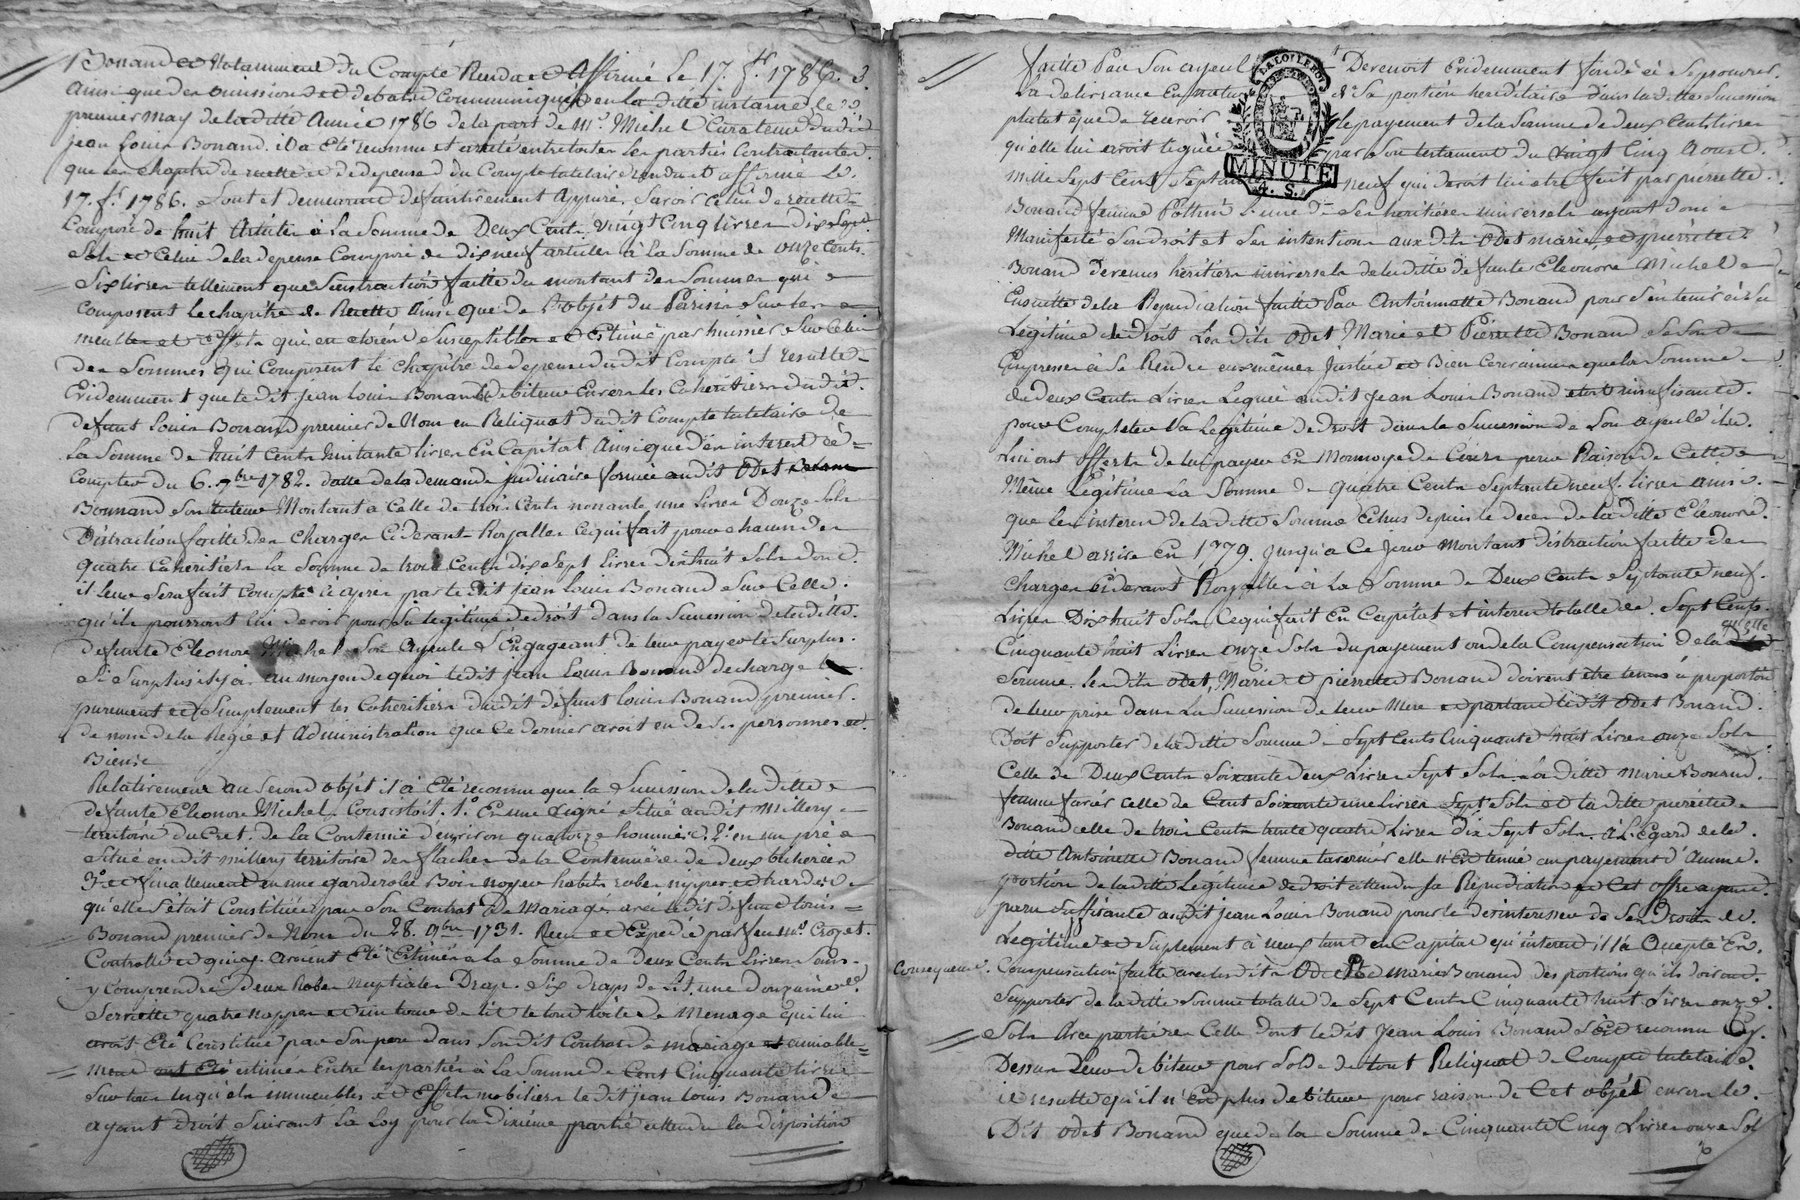 Bonand et Notamment du Compte Rendu et Affirmé Le 17. f.r 1786. 3
Ainsi que des omissions et debats communiqués en la ditte instance le
premier may de laditte Année 1786 de la part de M.e Michel Curateur dudit
jean Louis Bonand. il a Eté reconnu et arreté entre toutes les parties Contractantes
que les chapitres de recette et de depense du Compte tutelaire rendu et affirmé Le
17. f.r 1786. sont et demeurent deffinitivement Appurés. Savoir celui de recette
Composé de huit Articles à La somme de Deux Cents vingt Cinq livres dix sept
sols et Celui de la depense Composé de dix neuf articles à la Somme de onze Cents
Six livres tellement que Soustraction faitte du montant des Sommes qui
composent le chapitre de Recette Ainsi que de l'objet du Parisis sur les
meubles et Effets qui en etoient susceptibles et Estimés par huissier sur Celui
des Sommes qui Composent le chapitre de depense dudit Compte il resulte
Evidemment que le dit jean Louis Bonand debiteur Envers les Coheritiers dudit
defunt Louis Bonand premier de Nom en Reliquat dudit Compte tutelaire de
La Somme de huit Cents huitante livres En Capital Ainsi que d'en interest à
Compter du 6. 7bre 1782. datte de la demande judiciaire formée audit Odet
Bonnand son tuteur Montant à Celle de trois Cents nonante une Livres Douze Sols
Distraction faitte des charges Ci devant Royalles Ce qui fait pour chacun des
quatre Coheritiers la Somme de trois Cents dix sept livres dix huit Sols dont
il leur sera fait compte ci après par le dit jean Louis Bonand sur Celle
qu'ils pourront lui devoir pour sa legitime de droit dans la Succession de laditte
defunte Eleonore Michel Son Ayeule s'Engageant de leur payer le Surplus
Si Surplus il y a, au moyen de quoi ledit jean Louis Bonand decharge
purement et Simplement les Coheritiers dudit defunt Louis Bonand premier
de nom de la Regie et Administration que Ce dernier avoit eu de ses personnes et
Biens
Relativement au second objet il a Eté reconnu que la Succession de la ditte
defunte Eleonore Michel, Consistoit. 1.° En une vigne située audit Millery
territoire du Cret. de la Contenüe d'environ quatorze hommées. 2.° en un pré
situé audit millery territoire des flaches de la Contenüe de deux bicherées
3.° et finallement en une garderobe Bois noyer habits robes nippes et hardes
qu'elle s'étoit Constituée par Son Contrat de Mariage avec le dit defunt Louis
Bonand premier de Nom du 28. 9bre 1731. Reçu et Expedié par feu M.e Crozet
Controllé et qui y avoient Eté Estimés à la Somme de Deux Cents Livres sans
y Comprendre deux Robes nuptiales Drap. Six draps de Lit une douzaine de
Serviette quatre nappes et un tour de lit le tout toile de Menage qui lui
avoit Eté Constitué par Son pere dans Son dit Contrat de mariage et amiable
ment ont Eté estimés Entre les parties à La Somme de Cent Cinquante livres
Sur tous lesquels immeubles et Effets mobiliers le dit jean Louis Bonand
ayant droit Suivant La Loy pour la dixieme partie attendu la disposition
faitte Par Son ayeul Devenoit Evidemment fondé à Se pourvoir
La delivrance En nature de Sa portion hereditaire dans laditte Succession
plutot que de recevoir le payement de la Somme de deux Cents livres
qu'elle lui avoit leguée par Son testament du vingt Cinq Aoust
mille Sept Cent Septante neuf qui devoit lui etre fait par pierrette
Bonand femme Pothin l'une de Ses heritiers universels ayant donc
Manifesté Son droit et Ses intentions aux dits Odet marie, et pierrette
Bonand devenus heritiers universels de laditte defunte Eleonore Michel
Ensuitte de la Repudiation faitte Par Antoinnette Bonand pour s'en tenir à Sa
Legitime de droit Les dits Odet, Marie et Pierrette Bonand Se Sont
Empressés à Se Rendre eux mêmes Justice et Bien Convaincus que la Somme
de deux Cents Livres Leguée audit Jean Louis Bonand etoit insuffisante
pour Completer Sa Legitime de droit dans la Succession de Son ayeule ils
Lui ont offerts de lui payer En Monnoye de Cours pour Raison de Cette
Même Legitime La Somme de quatre Cents Septante neuf livres ainsi
que les interest de laditte Somme Echus depuis le deces de laditte Eleonore
Michel arrivé En 1779. jusqu'à Ce jour Montant distraction faitte des
charges cidevant Royalles à La Somme de Deux Cents Septante neuf
Livres Dix huit Sols Ce qui fait En Capital et interest totalle de Sept Cents
Cinquante huit Livres onze Sols du payement ou de la Compensation de laquelle
Somme les dits Odet, Marie et pierrette Bonand doivent être tenus à proportion
de leur prise dans La Succession de leur Mere et partant ledit Odet Bonand
Doit Supporter de laditte Somme de Sept Cents Cinquante huit Livres onze Sols
Celle de Deux Cents Soixante deux Livres Sept Sols la ditte marie Bonand
femme farés celle de Cent Soixante une Livres Sept Sols et la ditte pierrette
Bonand celle de trois Cents trente quatre Livres dix Sept Sols. à L'Egard de la
ditte Antoinette Bonand femme tavernier elle n'Est tenue au payement d'Aucune
portion de laditte Légitime de droit attendu Sa Repudiation et Cet offre ayant
paru Suffisante audit jean Louis Bonand pour le desinteresser de Ses Droits de
Legitime et Suplement à iceux tant en Capital qu'interest il l'a Accepté En
Consequence. Compensation faitte avec lesdits Odet et Marie Bonand des portions qu'ils doivent
Supporter de la ditte Somme totalle de Sept Cents Cinquante huit Livres onze
Sols Avec partie de Celle dont le dit Jean Louis Bonand s'Est reconnu Cy
Dessus Leur debiteur pour Solde de tout Reliquat de Compte tutelaire.
il resulte qu'il n'Est plus debiteur pour raison de Cet objet envers le
Dit Odet Bonand que de la Somme de Cinquante Cinq Livres onze Sols
LA LOI LE ROI
MINUTE
4. S.